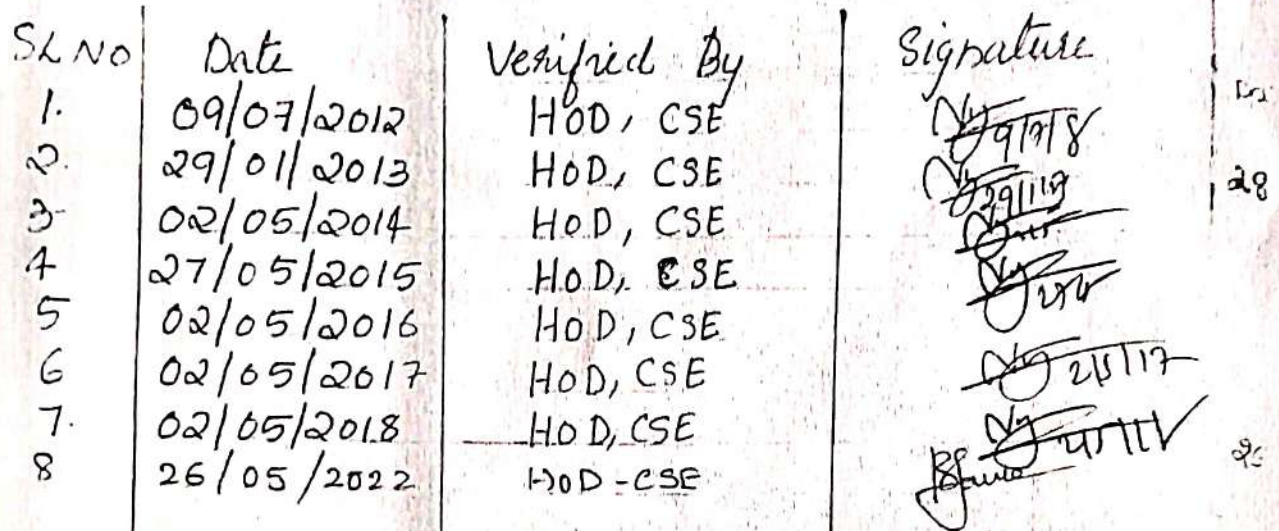 SL NO Date Verified By Signature
1. 09/07/2012 HOD, CSE
2. 29/01/2013 HOD, CSE
3 02/05/2014 HOD, CSE
4 27/05/2015 HOD, CSE
5 02/05/2016 HOD, CSE
6 02/05/2017 HOD, CSE
7. 02/05/2018 HOD, CSE
8 26/05/2022 HOD-CSE
28